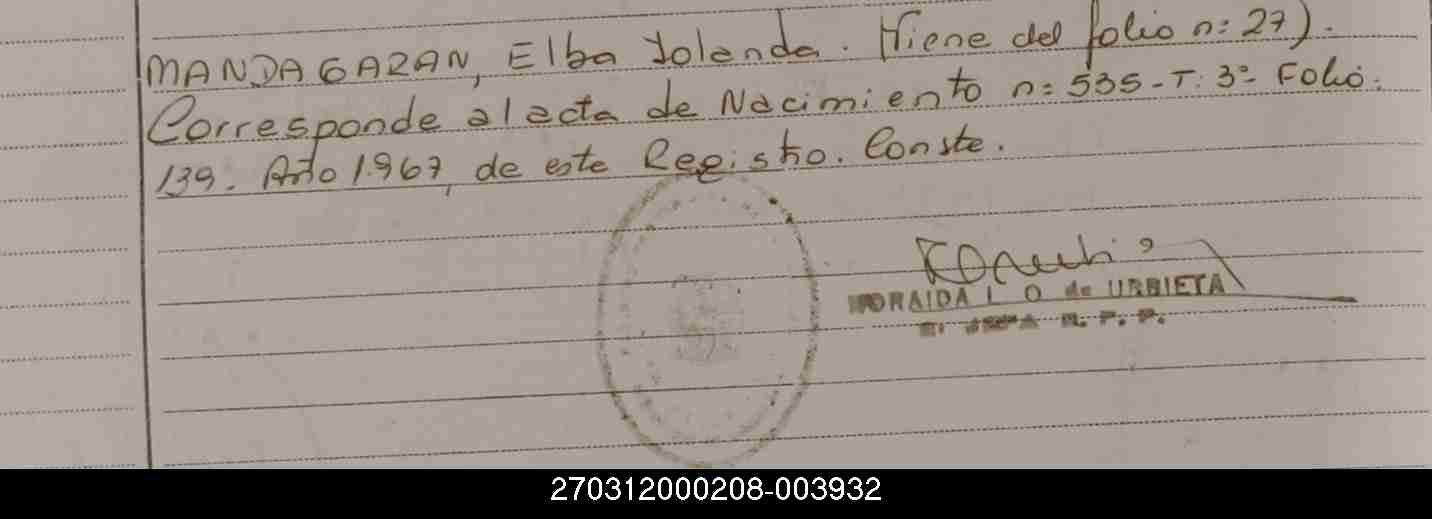 MANDAGARAN, Elba Yolanda. Viene del folio n: 27).
Corresponde al acta de Nacimiento n: 535 - T: 3º - Folio:
139. Año 1.967, de este Registro. Conste.
L O de URBIETA
R. P. P.
270312000208-003932